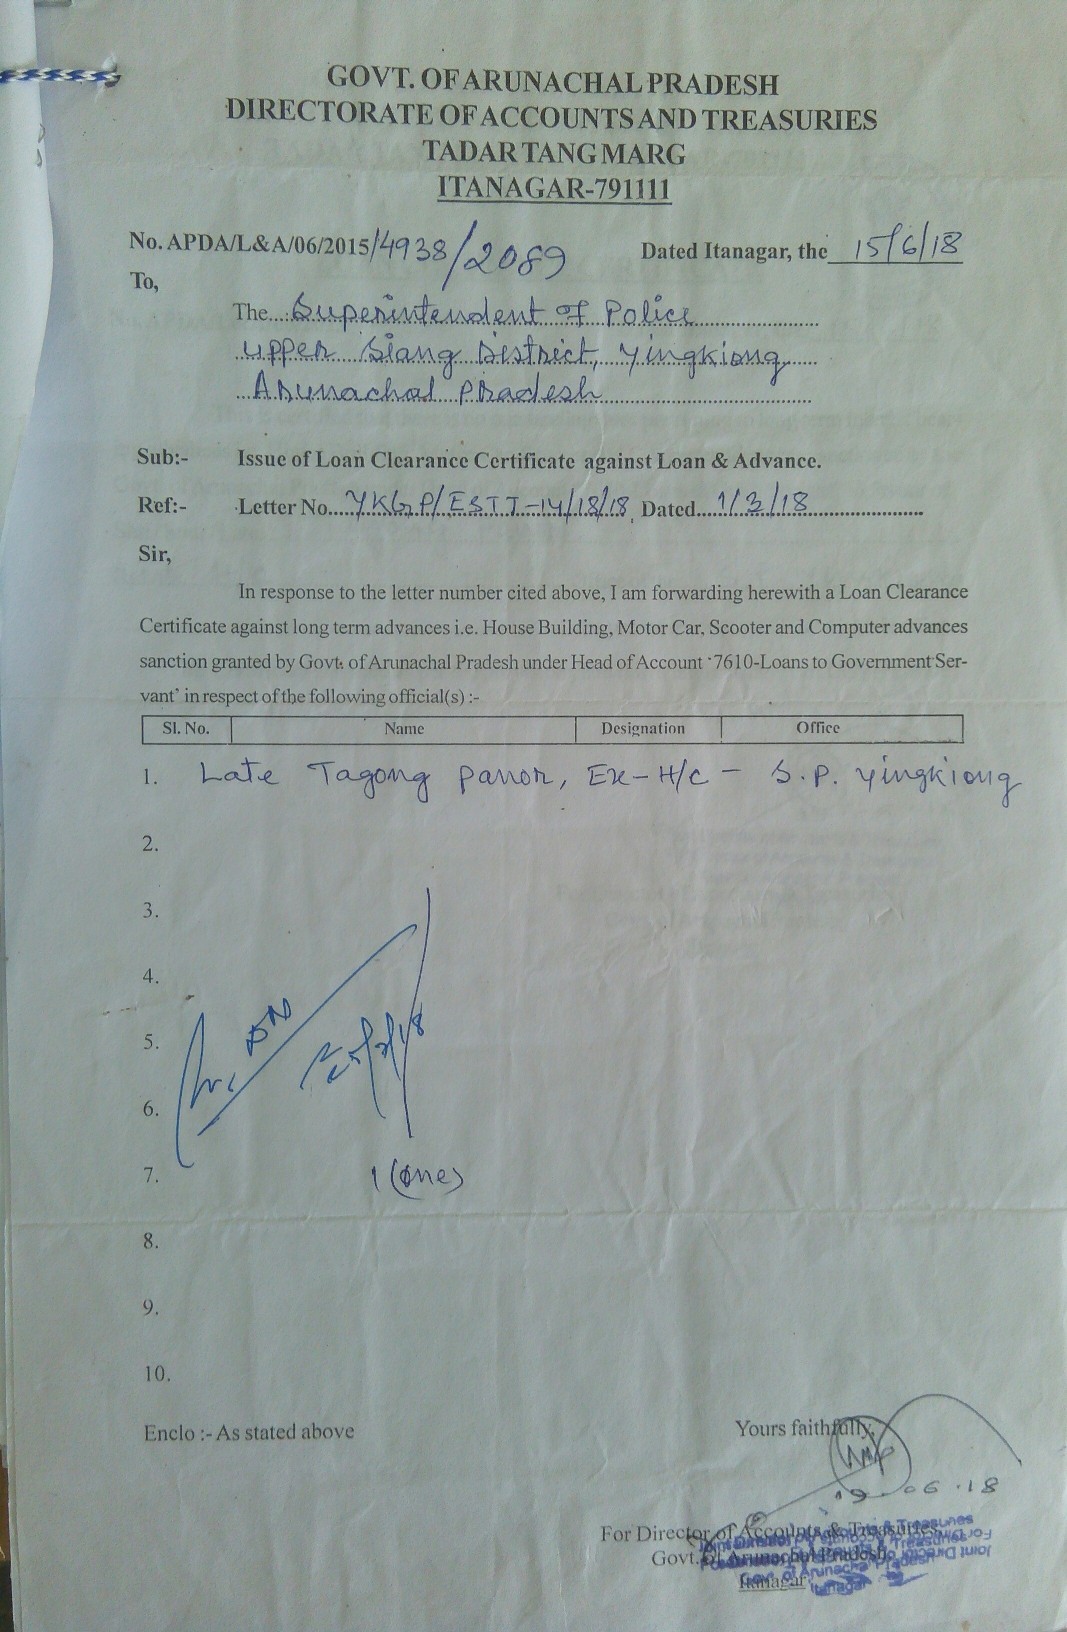 GOVT. OF ARUNACHAL PRADESH
DIRECTORATE OF ACCOUNTS AND TREASURIES
TADAR TANG MARG
ITANAGAR-791111
No. APDA/L&A/06/2015/4938/2089 Dated Itanagar, the 15/6/18
To,
The....Superintendent of Police
Upper Siang District, Yingkiong
Arunachal Pradesh
Sub:- Issue of Loan Clearance Certificate against Loan & Advance.
Ref:- Letter No....YKG,P/ESTT-14/18/18, Dated....1/3/18
Sir,
In response to the letter number cited above, I am forwarding herewith a Loan Clearance
Certificate against long term advances i.e. House Building, Motor Car, Scooter and Computer advances
sanction granted by Govt. of Arunachal Pradesh under Head of Account '7610-Loans to Government Ser-
vant' in respect of the following official(s) :-
Sl. No. Name Designation Office
1. Late Tagong Panor, Ex-H/C - S.P. Yingkiong
2.
3.
4.
5.
6.
7. 1 (One)
8.
9.
10.
Enclo :- As stated above Yours faithfully,
19.06.18
For Director of Accounts & Treasuries,
Govt. Of Arunachal Pradesh
Itanagar